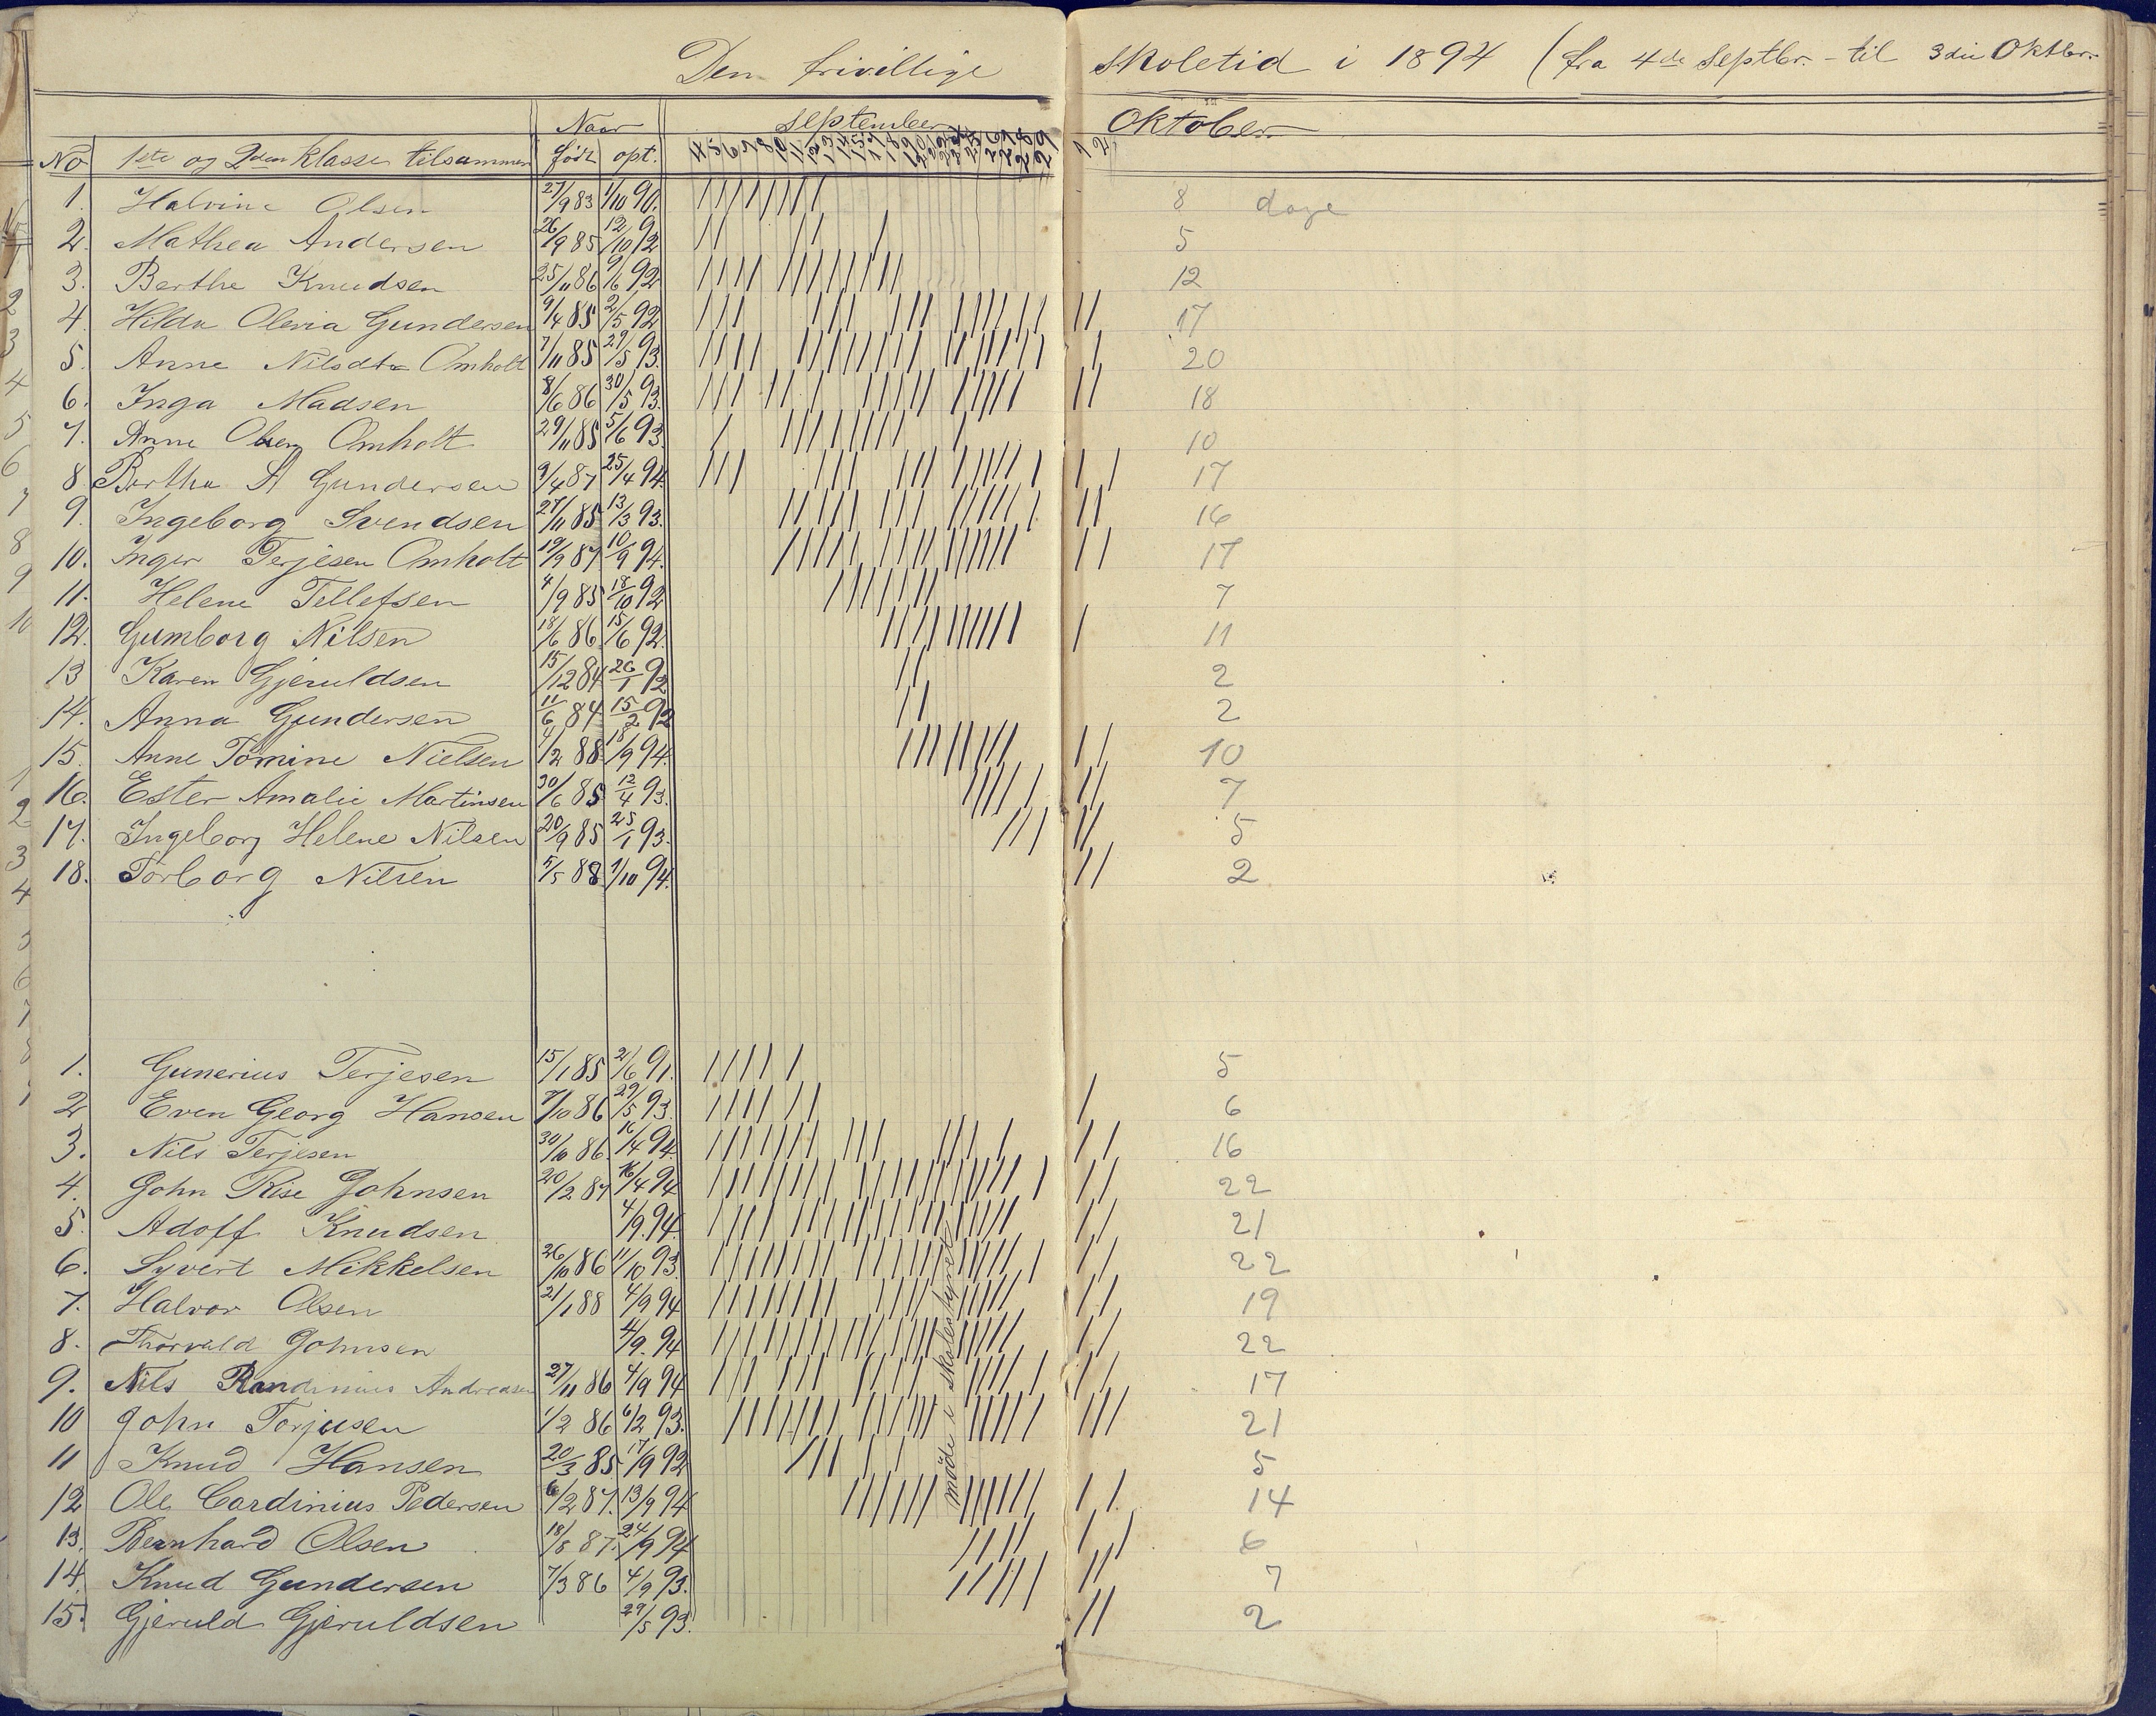 Den frivillige skoletid i 1894 (fra 4de Septbr. - til 3die Oktbr.
Naar September Oktober
No 1ste og 2den klasse tilsammen født opt.
1. Halvine Olsen 27/9 83 1/10 90. 8 dage
2. Mathea Andersen 26/9 85 12/10 92 5
3. Berthe Knudsen 25/11 86 9/6 92 12
4. Hilda Olevia Gundersen 9/4 85 2/5 92 17
5. Anne Nilsdtr Omholt 7/11 85 29/5 93. 20
6. Inga Madsen 8/6 86 30/5 93. 18
7. Anne Olsen Omholt 29/11 85 5/6 93. 10
8. Berthe A Gundersen 9/4 87 25/4 94. 17
9. Ingeborg Svendsen 27/11 85 13/3 93. 16
10. Inger Terjesen Omholt 19/9 87 10/9 94. 17
11. Helene Tellefsen 4/9 85 18/10 92 7
12. Gumborg Nilsen 18/6 86 15/6 92. 11
13 Karen Gjeruldsen 15/12 84 26/1 92 2
14. Anna Gundersen 11/6 84 15/2 92 2
15. Anne Tomine Nielsen 4/2 88 18/9 94. 10
16. Ester Amalie Martinsen 30/6 85 12/4 93. 7
17. Ingeborg Helene Nilsen 20/9 85 25/1 93. 5
18. Torborg Nilsen 5/5 88 1/10 94. 2
1. Gunerius Terjesen 15/1 85 2/6 91. 5
2 Even Georg Hansen 7/10 86 29/5 93. 6
3. Nils Terjesen 30/10 86. 16/4 94. 16
4. John Rise Johnsen 20/2 87 16/4 94 22
5. Adoff Knudsen 4/9 94. 21
6. Syvert Mikkelsen 26/10 86 11/10 93. 22
7. Halvor Olsen 21/1 88 4/9 94 19
8. Thorvald Johnsen 4/9. 94 22
9. Nils Randinius Andreasen 27/11 86 4/9 94 17
10 John Torjusen 1/2 86 6/2 93. 21
11 Knud Hansen 20/3 85 17/9 92 5
12 Ole Cardinius Pedersen 6/2 87. 13/9 94 14
13. Bernhard Olsen 18/8 87. 24/9 94 6
14. Knud Gundersen 7/3 86 4/9 93. 7
15. Gjeruld Gjeruldsen 29/5 93. 2
møde i skolestyret